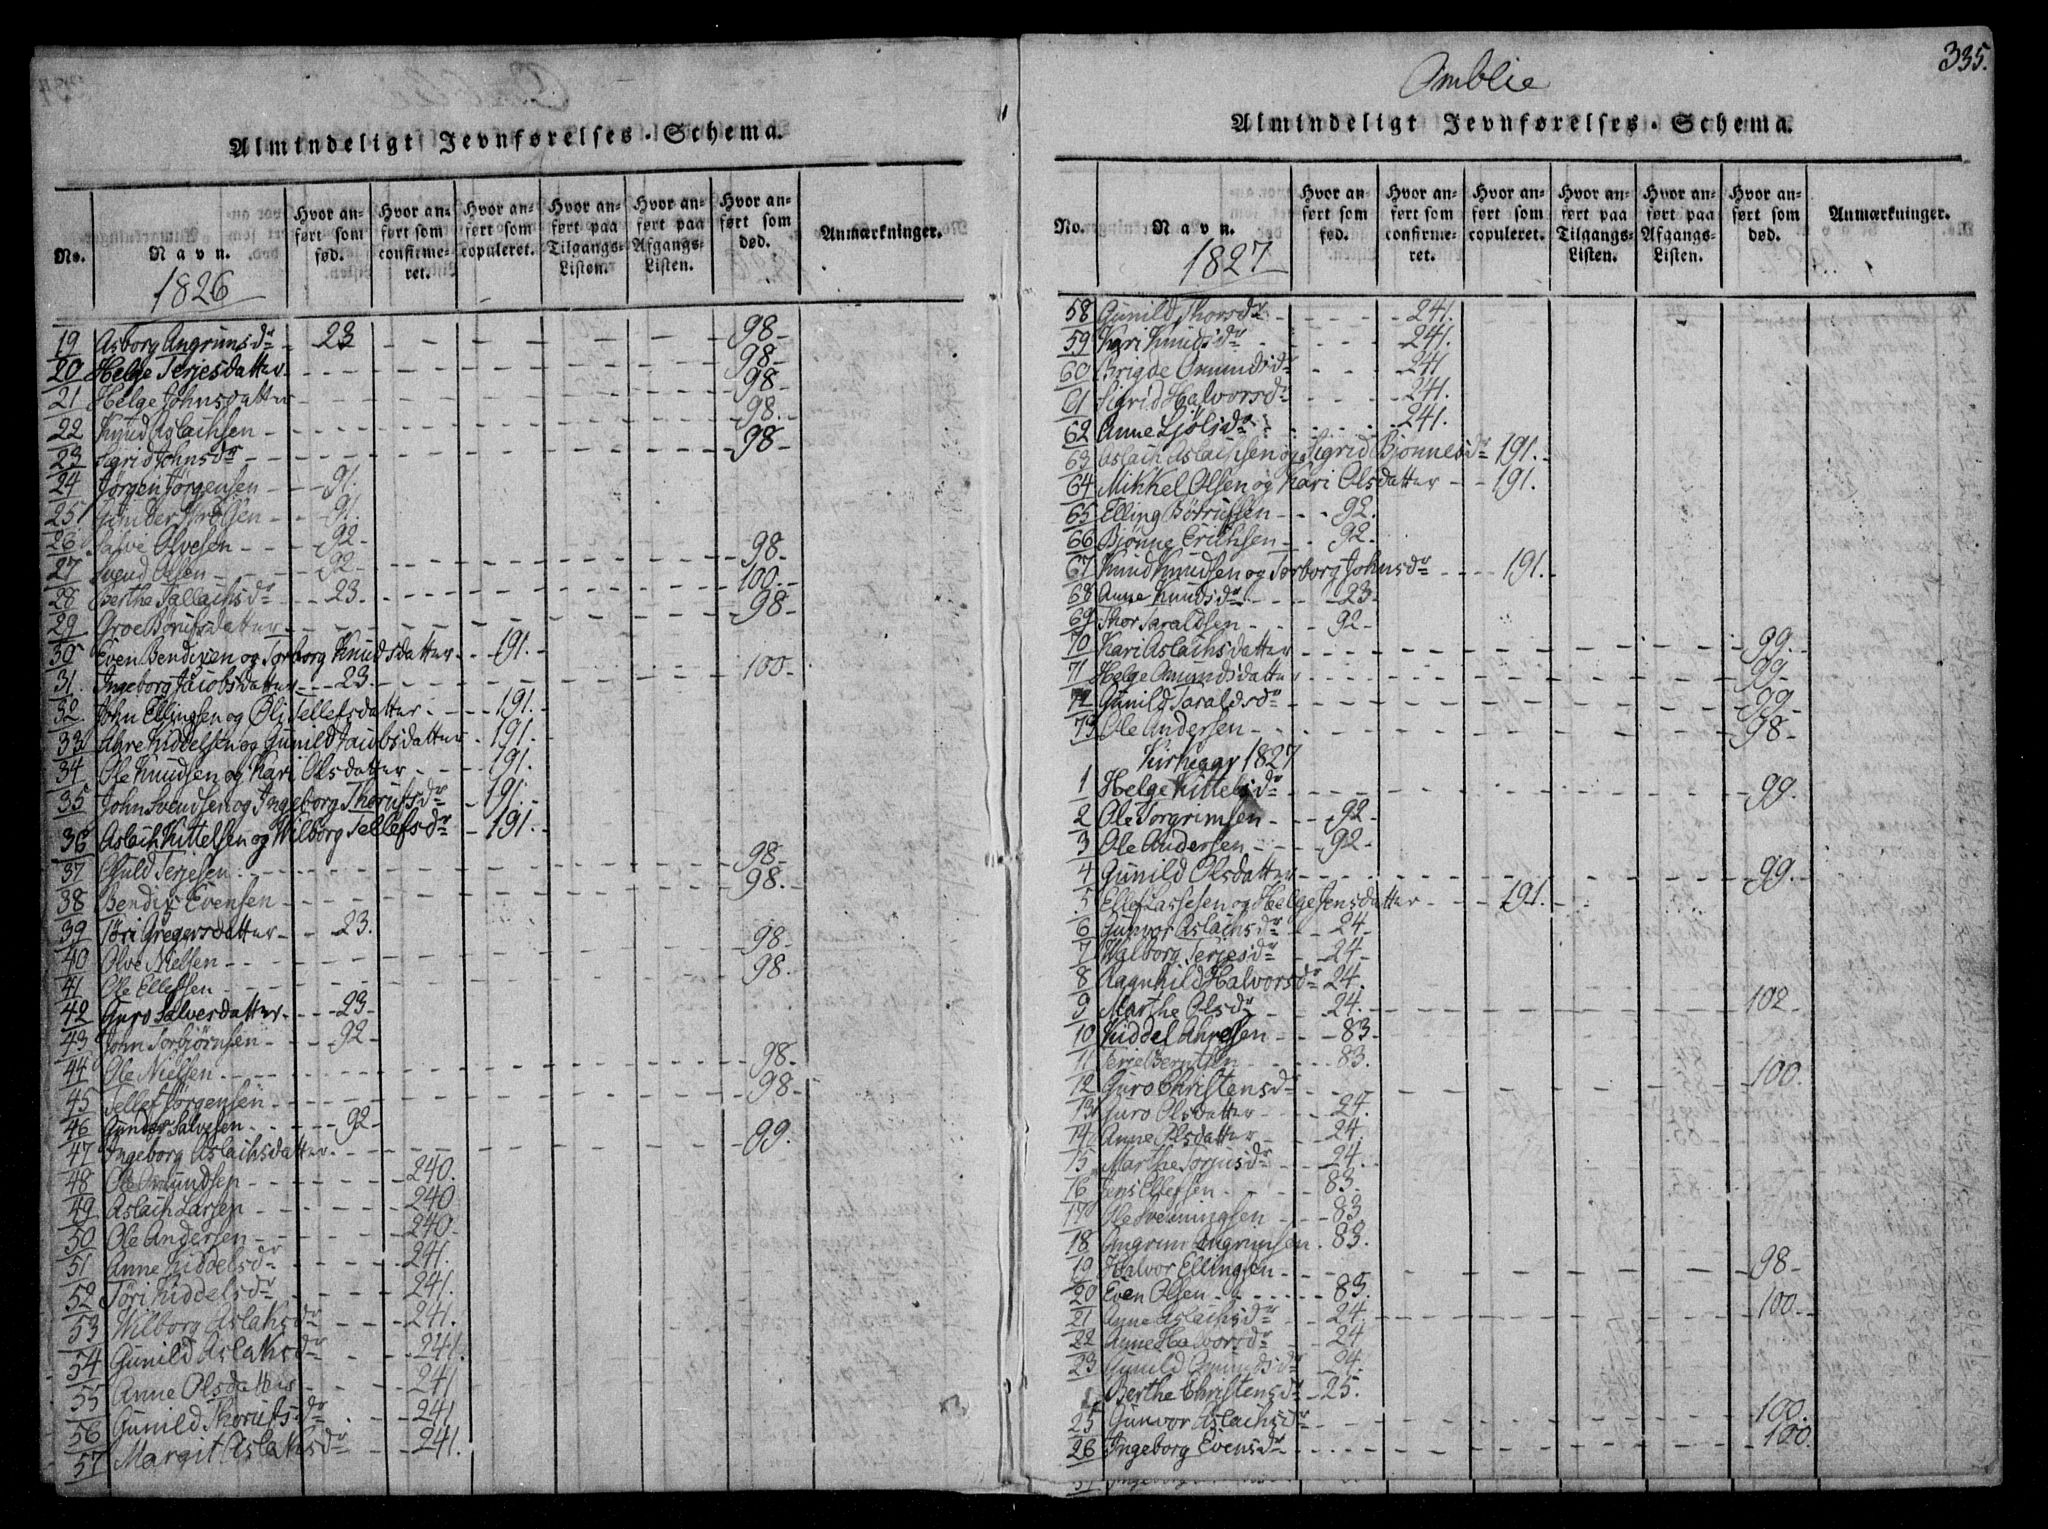 Almindeligt Jevnførelses-Schema.
No. Navn. Hvor anført som fød. Hvor anført som confirmeret. Hvor anført som copuleret. Hvor anført paa Tilgangs-Listen. Hvor anført paa Afgangs-Listen. Hvor anført som død. Anmærkninger.
1826
19 Asborg Angrimsdr 23 98
20 Helge Terjesdatter 98
21 Helge Johnsdatter 98
22 Knud Aslachsen 98
23 Sigrid Johnsdr 98
24 Jørgen Jørgensen 91
25 91
26 Salve Olvesen 92
27 Svend Olsen 92 98
28 Berthe Tallachsdr 23 100
29 Groe datter 98
30 Even Bendixen og Torborg Knudsdatter 191
31 Ingeborg Jacobsdatter 23 100
32 John Ellingsen og Oli Tellefsdatter 191
33 Ahre Kiddelsen og Gunild Jacobsdatter 191
34 Ole Knudsen og Kari Olsdatter 191
35 John Svendsen og Ingeborg Thorufsdr 191
36 Aslach Kittelsen og Wilborg Tellefsdr 191
37 Terjesen 98
38 Bendix Evensen 98
39 Tøri Gregersdatter 23
40 Olve Nielsen 98
41 Ole Ellefsen 98
42 Guro Salvesdatter 23
43 John Torbjørnsen 92
44 Ole Nielsen 98
45 Tellef Jørgensen 98
46 Gunder Salvesen 92
47 Ingeborg Aslachsdatter 99
48 Ole Omundsen 240
49 Aslach Larsen 240
50 Ole Andersen 240
51 Anne Kiddelsdr 241
52 Tøri Kiddelsdr 241
53 Wilborg Aslaksdr 241
54 Gunild Aslaksdr 241
55 Anne Olsdatter 241
56 Gunild Thorufsdr 241
57 Margit Aslaksdr 241
335.
Omblie
Almindeligt Jevnførelses-Schema.
No. Navn. Hvor anført som fød. Hvor anført som confirmeret. Hvor anført som copuleret. Hvor anført paa Tilgangs-Listen. Hvor anført paa Afgangs-Listen. Hvor anført som død. Anmærkninger.
1827
58 Gunild Thorsdr 241
59 Kari Knudsdr 241
60 Brigde Omundsdr 241
61 Sigrid Halvorsdr 241
62 Anne 241
63 Aslach Aslachsen og Sigrid Bjonnesdr 191
64 Mikkel Olsen og Kari Olsdatter 191
65 Elling Børufsen 92
66 Bjonne Erichsen 92
67 Knud Knudsen og Torborg Johnsdr 191
68 Anne Knudsdr 23
69 Thor Taraldsen 92
70 Kari Aslachsdatter 99
71 Helge Omundsdatter 99
72 Gunild Taraldsdr 99
73 Ole Andersen 98
Kirkeaar 1827
1 Helge Kittelsdr 99
2 Ole Torgrimsen 92
3 Ole Andersen 92
4 Gunild Olsdatter 99
5 Ellef Lassesen og Helge Jensdatter 191
6 Gunvor Aslachsdr 24
7 Walborg Terjesdr 24
8 Ragnhild Halvorsdr 24
9 Marthe Olsdr 24 102
10 Kiddel Ahresen 83
11 Terje Berntsen 83
12 Guro Christensdr 100
13 Guro Olsdatter 24
14 Anne Olsdatter 24
15 Marthe Torjusdr 24
16 Jens Ellefsen 83
17 Ole Svenningsen 83
18 Angrim Angrimsen 83
19 Halvor Ellingsen 98
20 Even Olsen 83
21 Anne Aslachsdr 24 100
22 Anne Halvorsdr 24
23 Gunild Omundsdr 24
Berthe Christensdr 25
25 Gunvor Aslachsdr 100
26 Ingeborg Evensdr 100